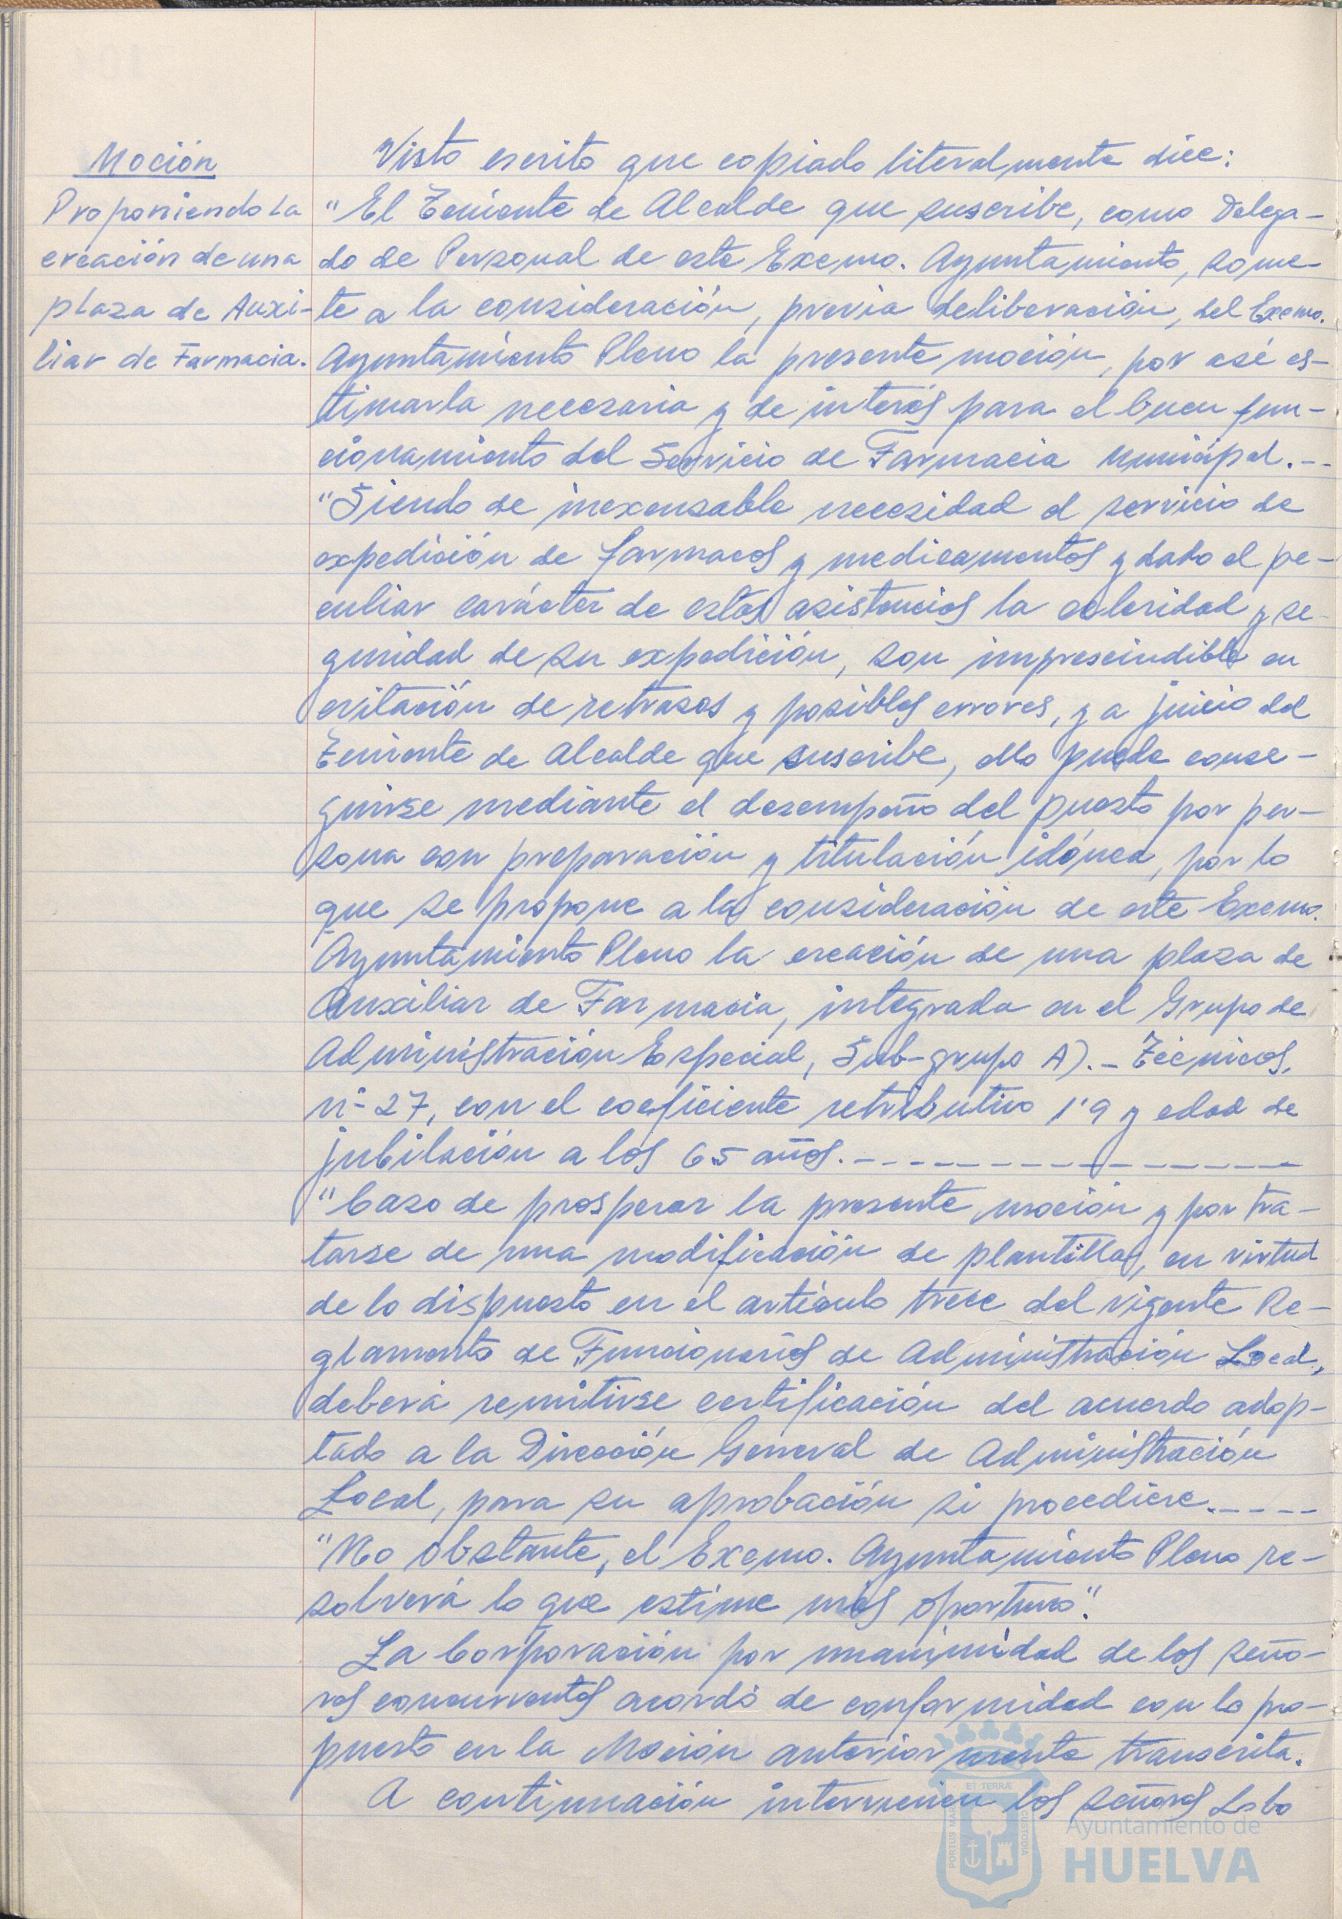 Moción
Proponiendo la
creación de una
plaza de Auxi-
liar de Farmacia.
Visto escrito que copiado literalmente dice:
"El Teniente de Alcalde que suscribe, como Delega-
do de Personal de este Excmo. Ayuntamiento, some-
te a la consideración, previa deliberación, del Excmo.
Ayuntamiento Pleno la presente moción, por asi es-
timarla necesaria y de interés para el buen fun-
cionamiento del Servicio de Farmacia Municipal.--
"Siendo de inexcusable necesidad el servicio de
expedición de farmacos y medicamentos y dado el pe-
culiar carácter de estas asistencias la celeridad y se-
guridad de su expedición, son imprescindible en
evitación de retrasos y posibles errores, y a juicio del
Teniente de Alcalde que suscribe, ello puede conse-
guirse mediante el desempeño del puesto por per-
sona con preparación y titulación idónea, por lo
que se propone a la consideración de este Excmo.
Ayuntamiento Pleno la creación de una plaza de
Auxiliar de Farmacia, integrada en el Grupo de
Administración Especial, Sub-grupo A).- Técnicos,
nº 27, con el coeficiente retributivo 1'9 y edad de
jubilación a los 65 años.----------------
"Caso de prosperar la presente moción y por tra-
tarse de una modificación de plantilla, en virtud
de lo dispuesto en el artículo trece del vigente Re-
glamento de Funcionarios de Administración Local,
deberá remitirse certificación del acuerdo adop-
tado a la Dirección General de Administración
Local, para su aprobación si procediere.----
"No obstante, el Excmo. Ayuntamiento Pleno re-
solverá lo que estime más oportuno".
La Corporación por unanimidad de los seño-
res concurrentes acordó de conformidad con lo pro-
puesto en la Moción anteriormente transcrita.
A continuación intervienen los señores Lobo
ET TERRÆ
PORTUS MARIS
CUSTODIA
Ayuntamiento de
HUELVA